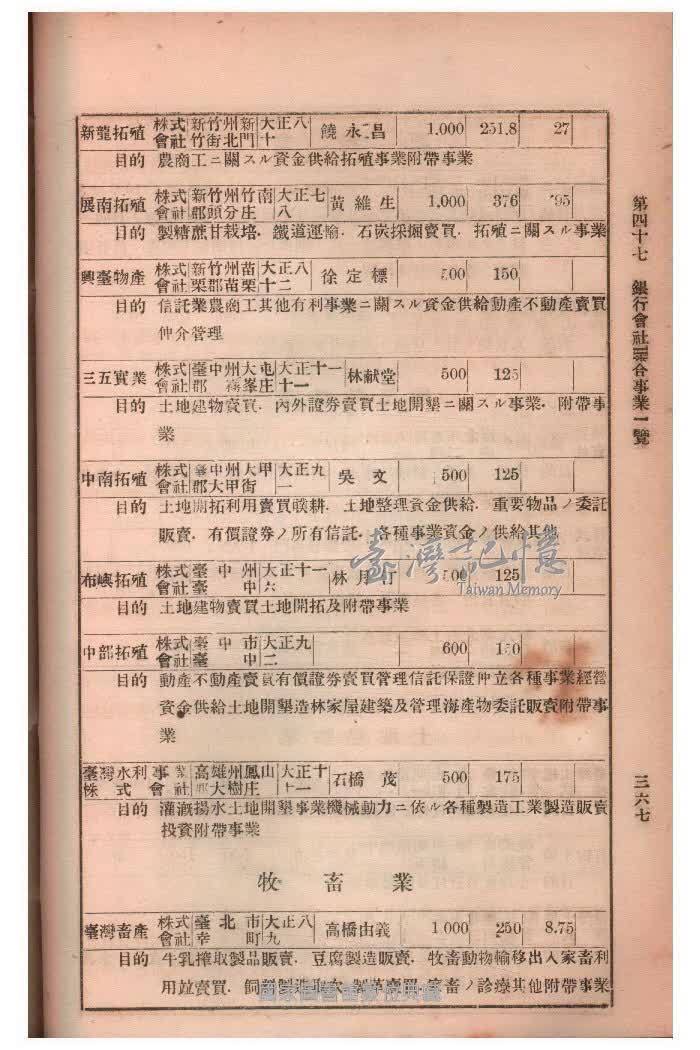 第四十七 銀行會社組合事業一覽
三六七
新龍拓殖 株式會社 新竹州新竹街北門 大正八十 饒永昌 1.000 251.8 27
目的 農商工ニ關スル資金供給拓殖事業附帶事業
展南拓殖 株式會社 新竹州竹南郡頭分庄 大正七八 黃維生 1.000 376 95
目的 製糖蔗甘栽培．鐵道運輸．石炭採掘賣買．拓殖ニ關スル事業
興臺物產 株式會社 新竹州苗栗郡苗栗 大正八十二 徐定標 500 150
目的 信託業農商工其他有利事業ニ關スル資金供給動產不動產賣買
仲介管理
三五實業 株式會社 臺中州大屯郡霧峯庄 大正十一十一 林献堂 500 125
目的 土地建物賣買．內外證券賣買土地開墾ニ關スル事業．附帶事
業
中南拓殖 株式會社 臺中州大甲郡大甲街 大正九一 吳文 500 125
目的 土地開拓利用賣買耕．土地整理資金供給．重要物品ノ委託
販賣．有價證券ノ所有信託．各種事業資金ノ供給其他
布嶼拓殖 株式會社 臺中州臺中 大正十一六 林月汀 500 125
目的 土地建物賣買土地開拓及附帶事業
中部拓殖 株式會社 臺中市臺中 大正九二 600 150
目的 動產不動產賣買有價證券賣買管理信託保證仲立各種事業經營
資金供給土地開墾造林家屋建築及管理海產物委託販賣附帶事
業
臺灣水利事業株式會社 高雄州鳳山郡大樹庄 大正十十一 石橋茂 500 175
目的 灌漑揚水土地開墾事業機械動力ニ依ル各種製造工業製造販賣
投資附帶事業
牧畜業
臺灣畜產 株式會社 臺北市幸町 大正八九 高橋由義 1.000 250 8.75
目的 牛乳搾取製品販賣．豆腐製造販賣．牧畜動物輸移出入家畜利
用竝賣買．飼料製造取次．製革賣買．家畜ノ診療其他附帶事業
臺灣記憶
Taiwan Memory